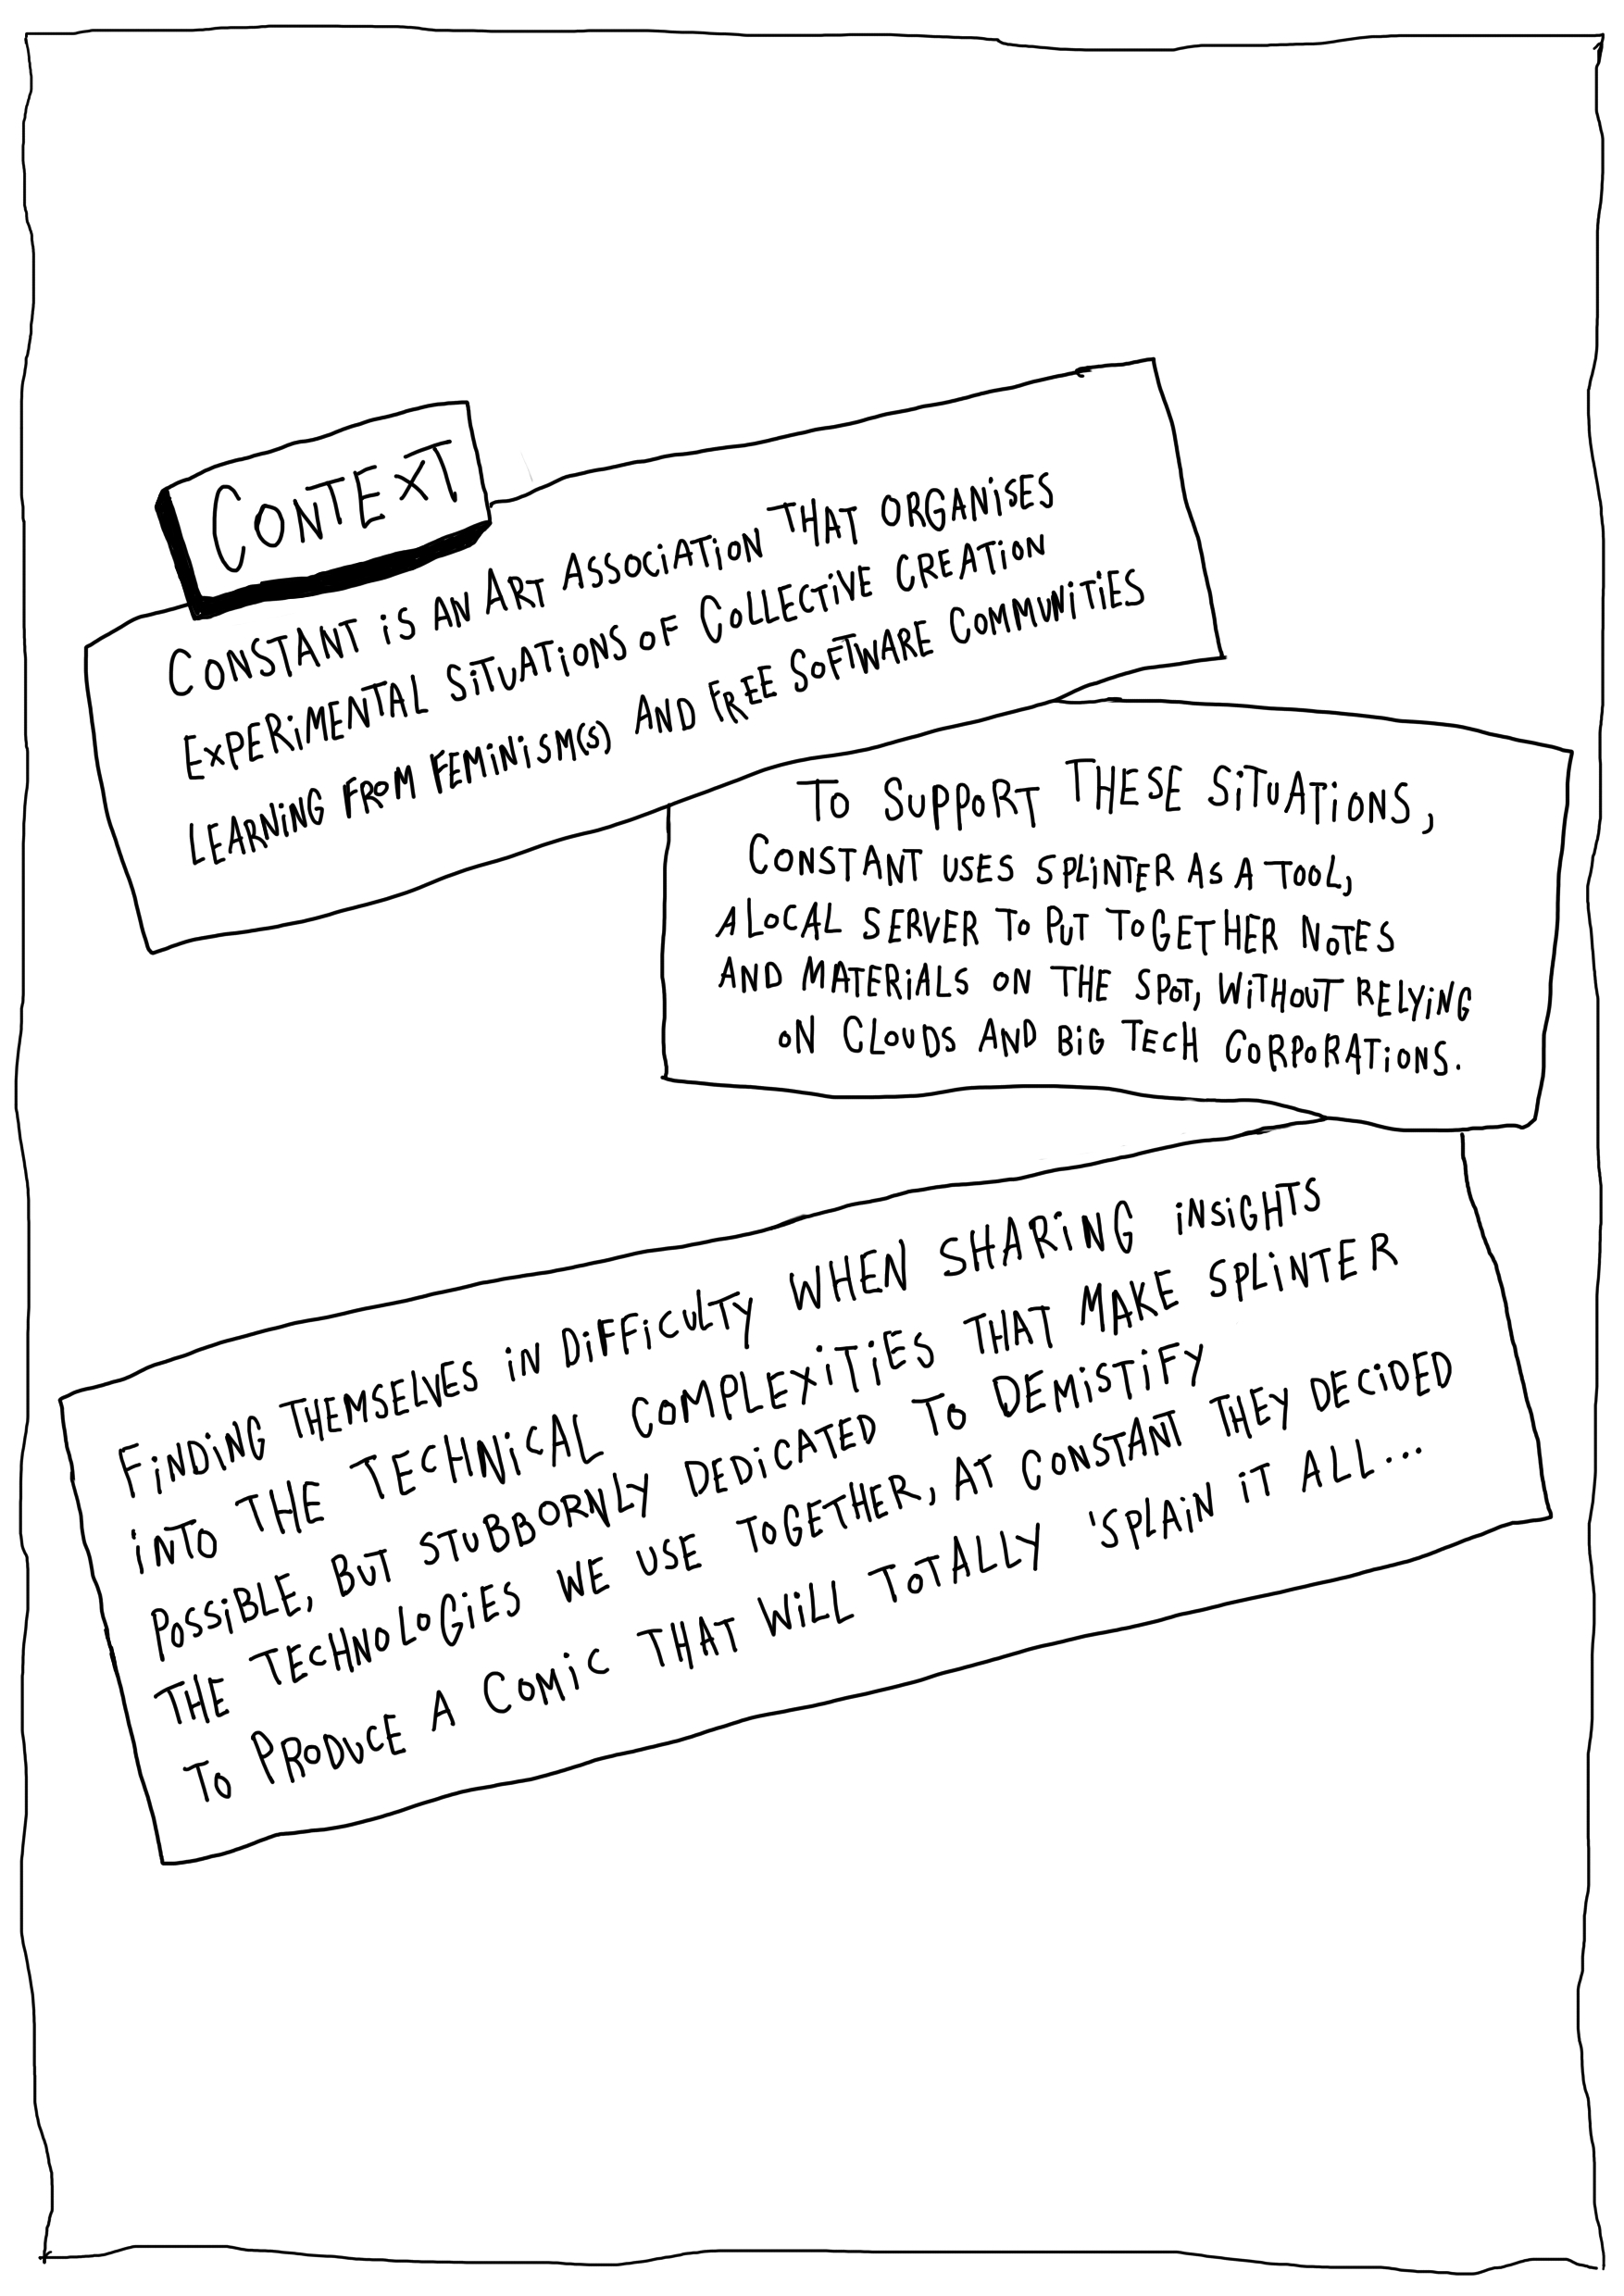 CONTEXT
CONSTANT iS AN ART ASSOCiATiON THAT ORGANiSES
EXPERiMENTAL SiTUATiONS OF COLLECTiVE CREATiON
LEARNiNG FROM FEMiNiSM(S) AND FREE SOFTWARE COMMUNiTiES
TO SUPPORT THESE SiTUATiONS,
CONSTANT USES SPLiNTER AS A TOOL,
A LOCAL SERVER TO PUT TOGETHER NOTES
AND MATERiALS ON THE SPOT, WiTHOUT RELYiNG
ON CLOUDS AND BiG TECH CORPORATiONS.
FiNDiNG THEMSELVES iN DiFFiCULTY WHEN SHARiNG iNSiGHTS
iNTO THE TECHNiCAL COMPLEXiTiES THAT MAKE SPLiNTER
POSSiBLE, BUT STUBBORNLY DEDiCATED TO DEMiSTiFY
THE TECHNOLOGiES WE USE TOGETHER, AT CONSTANT THEY DECiDED
TO PRODUCE A COMiC THAT WiLL TOTALLY 'SPLAiN iT ALL...